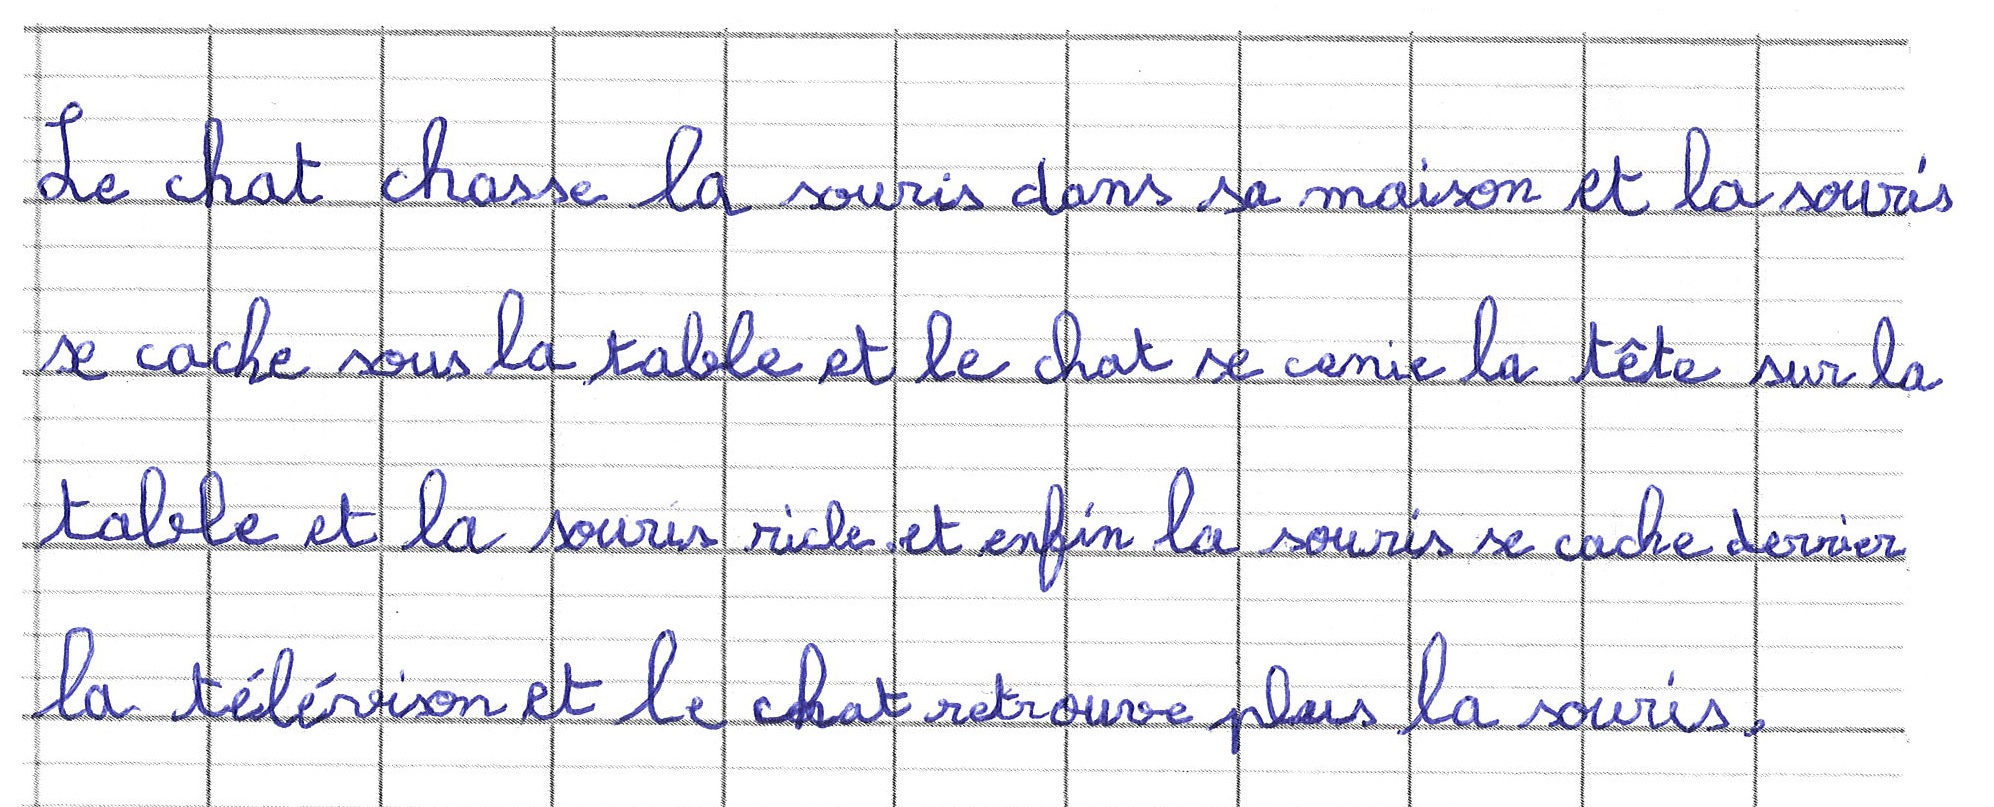 Le chat chasse la souris dans sa maison et la souris
se cache sous la table et le chat se cenie la tête sur la
table et la souris ricle et enfin la souris se cache derrier
la télévison et le chat retrouve plus la souris.